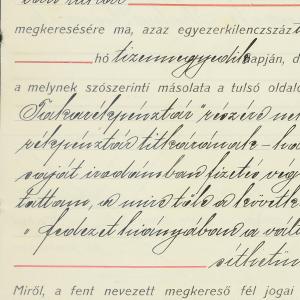 megkeresésére ma, azaz egyezerkilenczszáz
hó tizennegyedik napján, d
a melynek szószerinti másolata a tulsó oldalo
Takarékpénztár" részére
rékpénztár titkárának
saját irodámban fizetés vég
tattam, a mire tőle a követk
" fedezet hiányában a váll
sithetin
Miről, a fent nevezett megkereső fél jogai